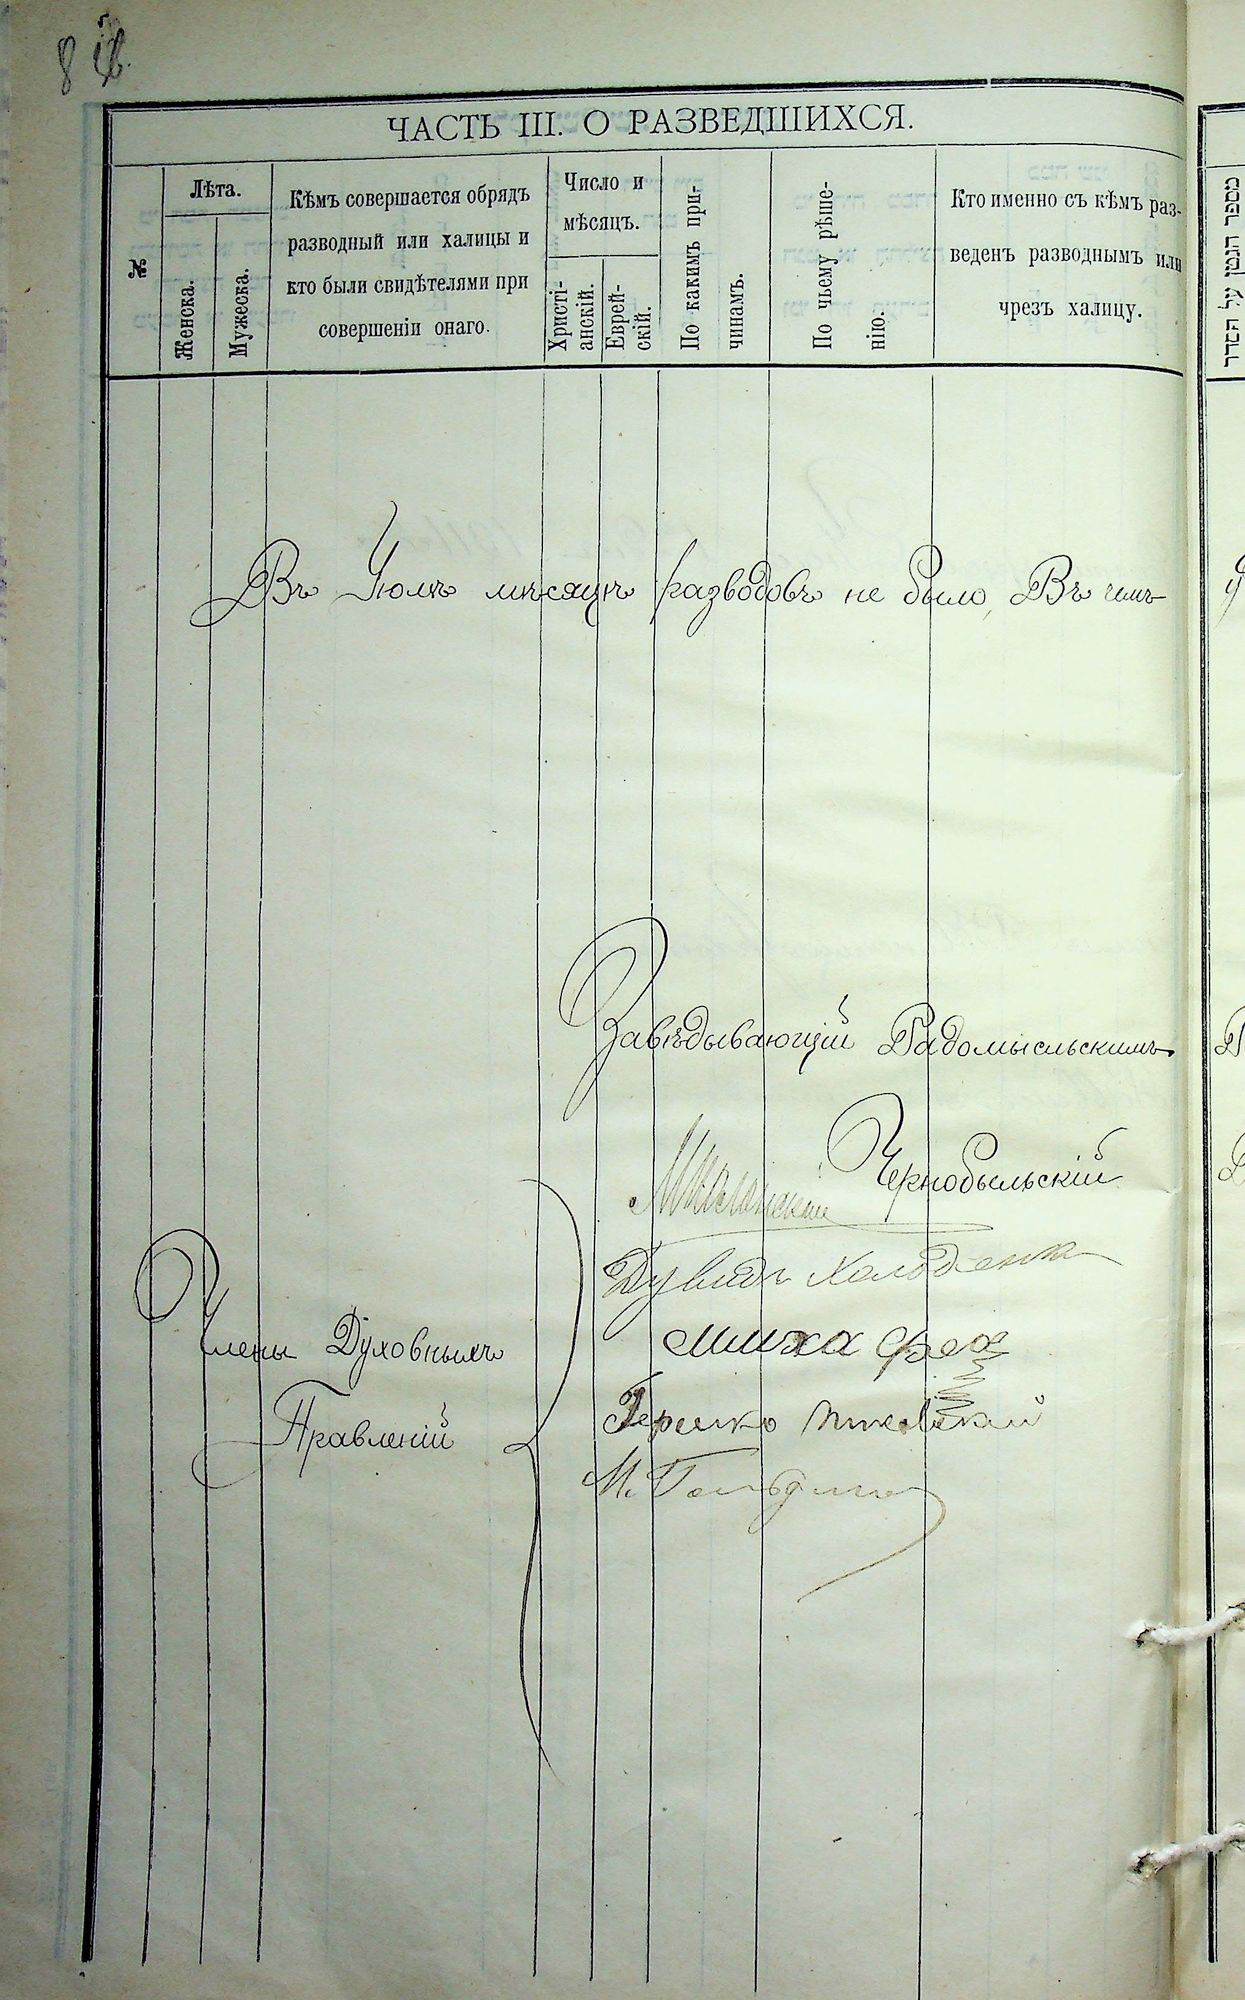 8
ЧАСТЬ III. О РАЗВЕДШИХСЯ.
№
Лѣта.
Женска.
Мужеска.
Кѣмъ совершается обрядъ
разводный или халицы и
кто были свидѣтелями при
совершеніи онаго.
Число и
мѣсяцъ.
Христі-
анскій.
Еврей-
скій.
По какимъ при-
чинамъ.
По чьему рѣше-
нію.
Кто именно съ кѣмъ раз-
веденъ разводнымъ или
чрезъ халицу.
מספר הגטן על הסדר
Въ Іюлѣ мѣсяцѣ разводовъ не было, Въ чемъ
Завѣдывающій Радомысльскимъ
Чернобыльскій
Дувидъ Холодenko
Члены Духовныхъ
Правленій
Мшха
Гершко
М. Гольдин